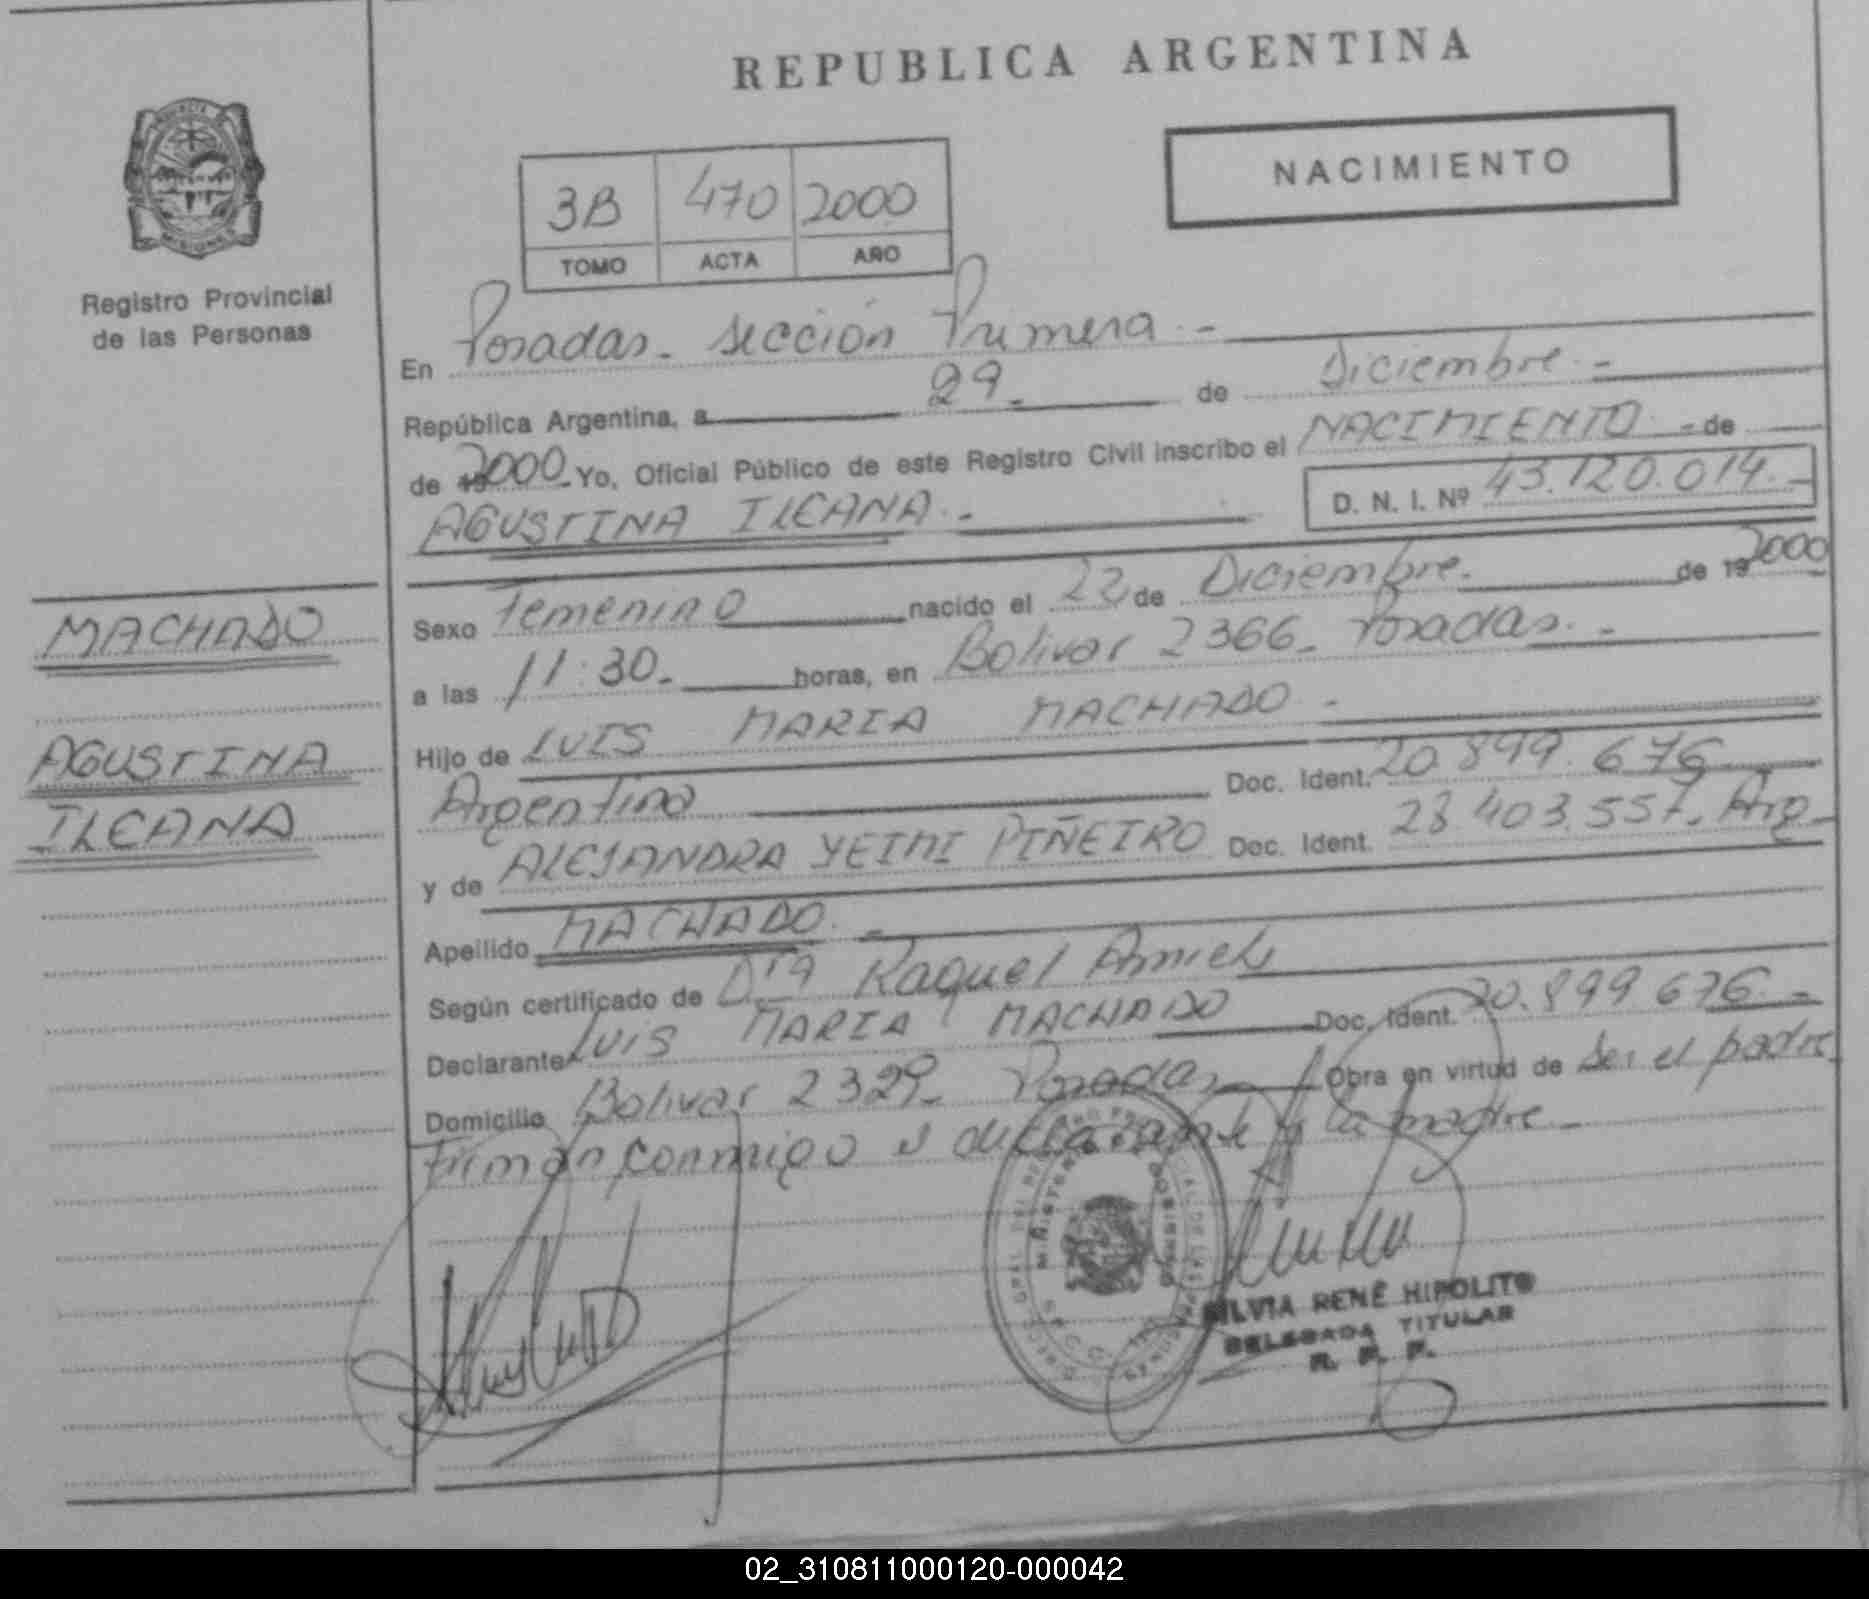 REPUBLICA ARGENTINA
NACIMIENTO
3B 470 2000
TOMO ACTA AÑO
MISIONES
Registro Provincial
de las Personas
En Posadas. Sección Primera.-
República Argentina, a 29.- de Diciembre.-
de 19 2000. Yo, Oficial Público de este Registro Civil inscribo el NACIMIENTO - de
AGUSTINA ILEANA.-
D. N. I. Nº 43.120.014.-
Sexo Femenino nacido el 22 de Diciembre. de 19 2000
a las 11:30.- horas, en Bolivar 2366. Posadas.-
Hijo de LUIS MARIA MACHADO.-
Argentino Doc. Ident. 20.899.676
y de ALEJANDRA YEIMI PIÑEIRO Doc. Ident. 28.403.557. Arg.
Apellido MACHADO.-
Según certificado de Dra Raquel
Declarante LUIS MARIA MACHADO Doc. Ident. 20.899.676.-
Domicilio Bolivar 2329. Posadas Obra en virtud de ser el padre
Firman conmigo el declarante y la madre.-
MACHADO
AGUSTINA
ILEANA
SILVIA RENÉ HIPOLITO
DELEGADA TITULAR
R. P. P.
02_310811000120-000042